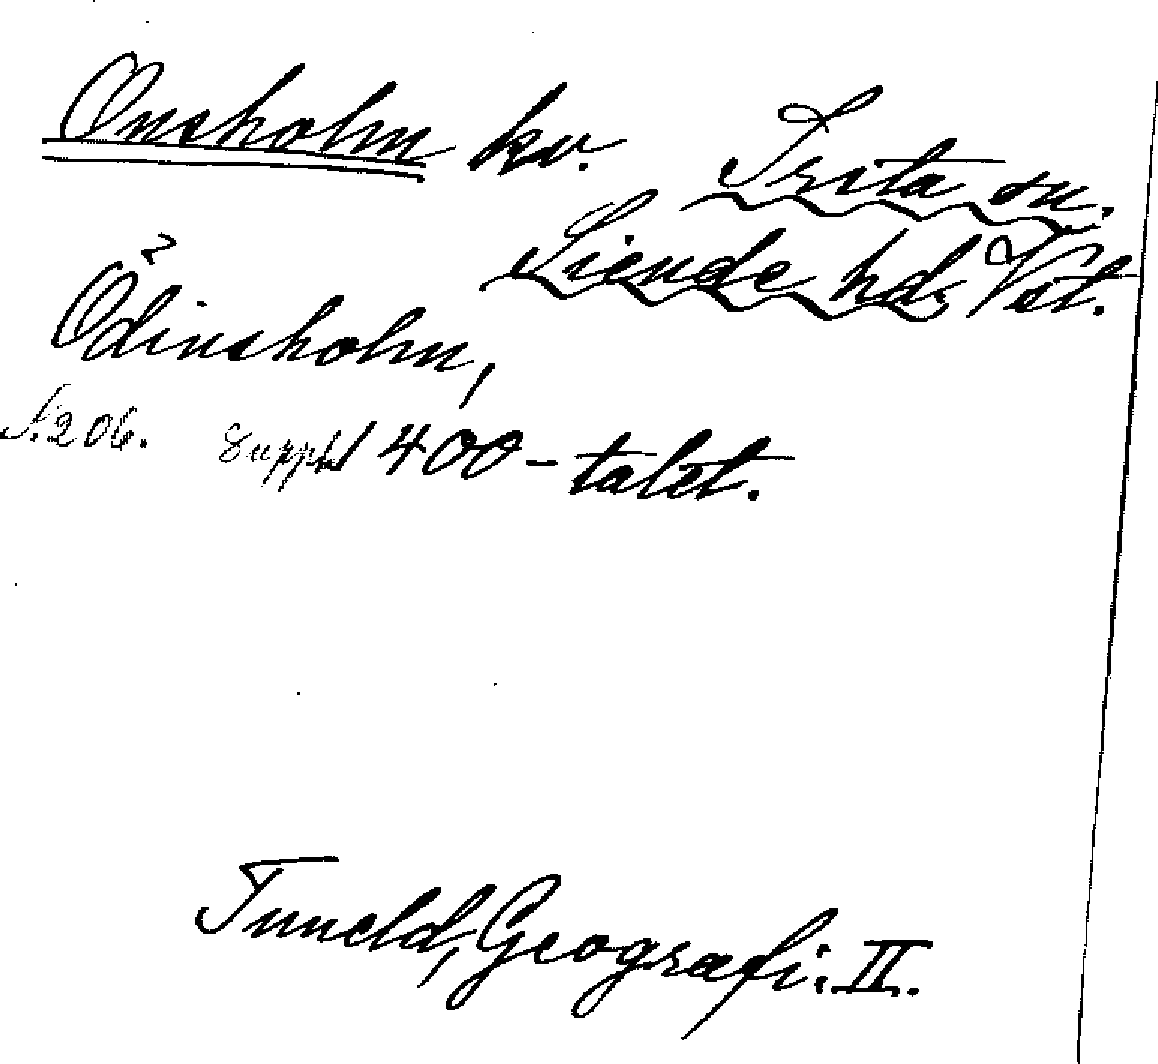 Onsholm kv. Irsta sn.
Siende hd. Vst.
Odinsholm,
S. 206. Suppl 1400-talet.
Tuneld, Geografi. II.